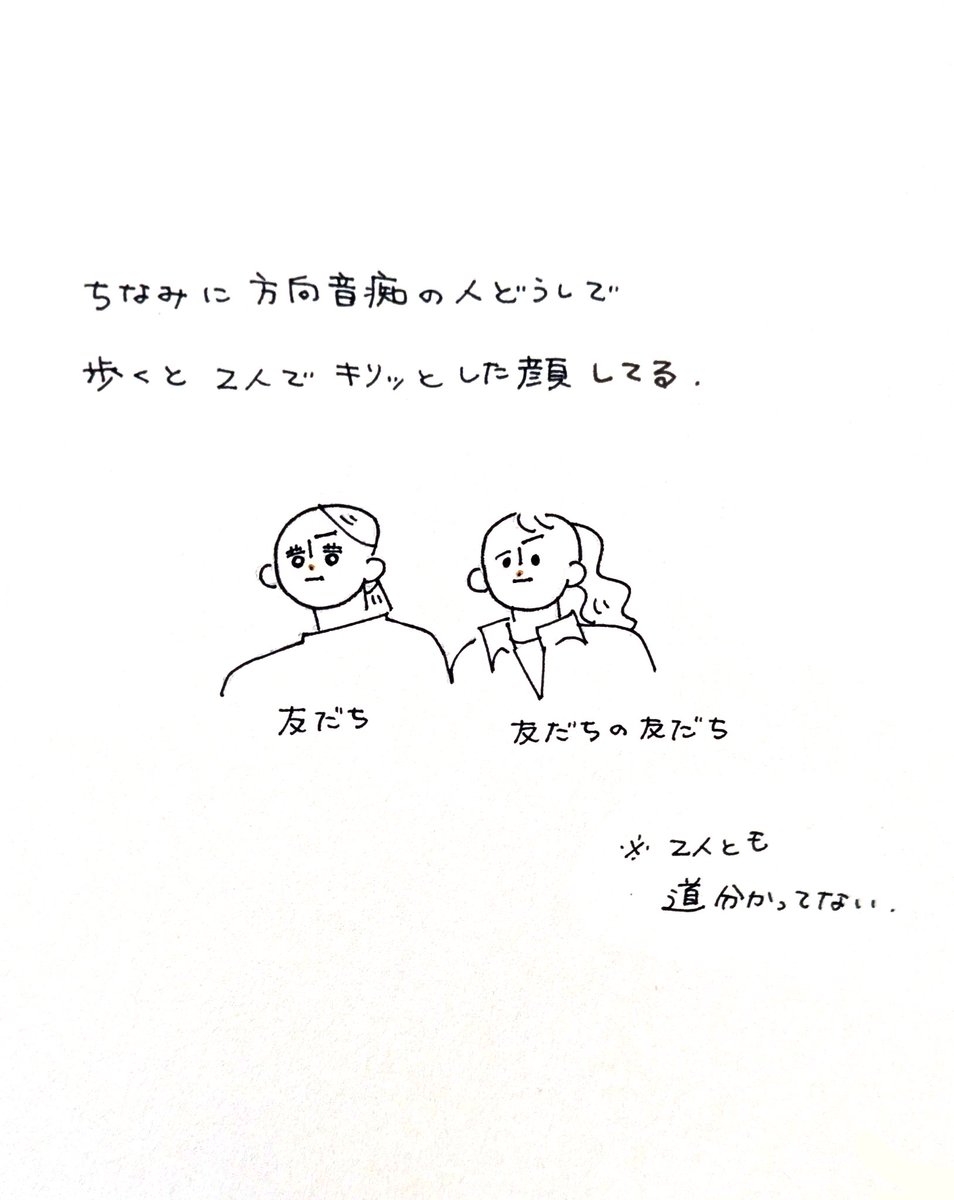 ちなみに方向音痴の人どうしで
歩くと 2人で キリッとした顔してる.
友だち
友だちの友だち
※ 2人とも
道分かってない.